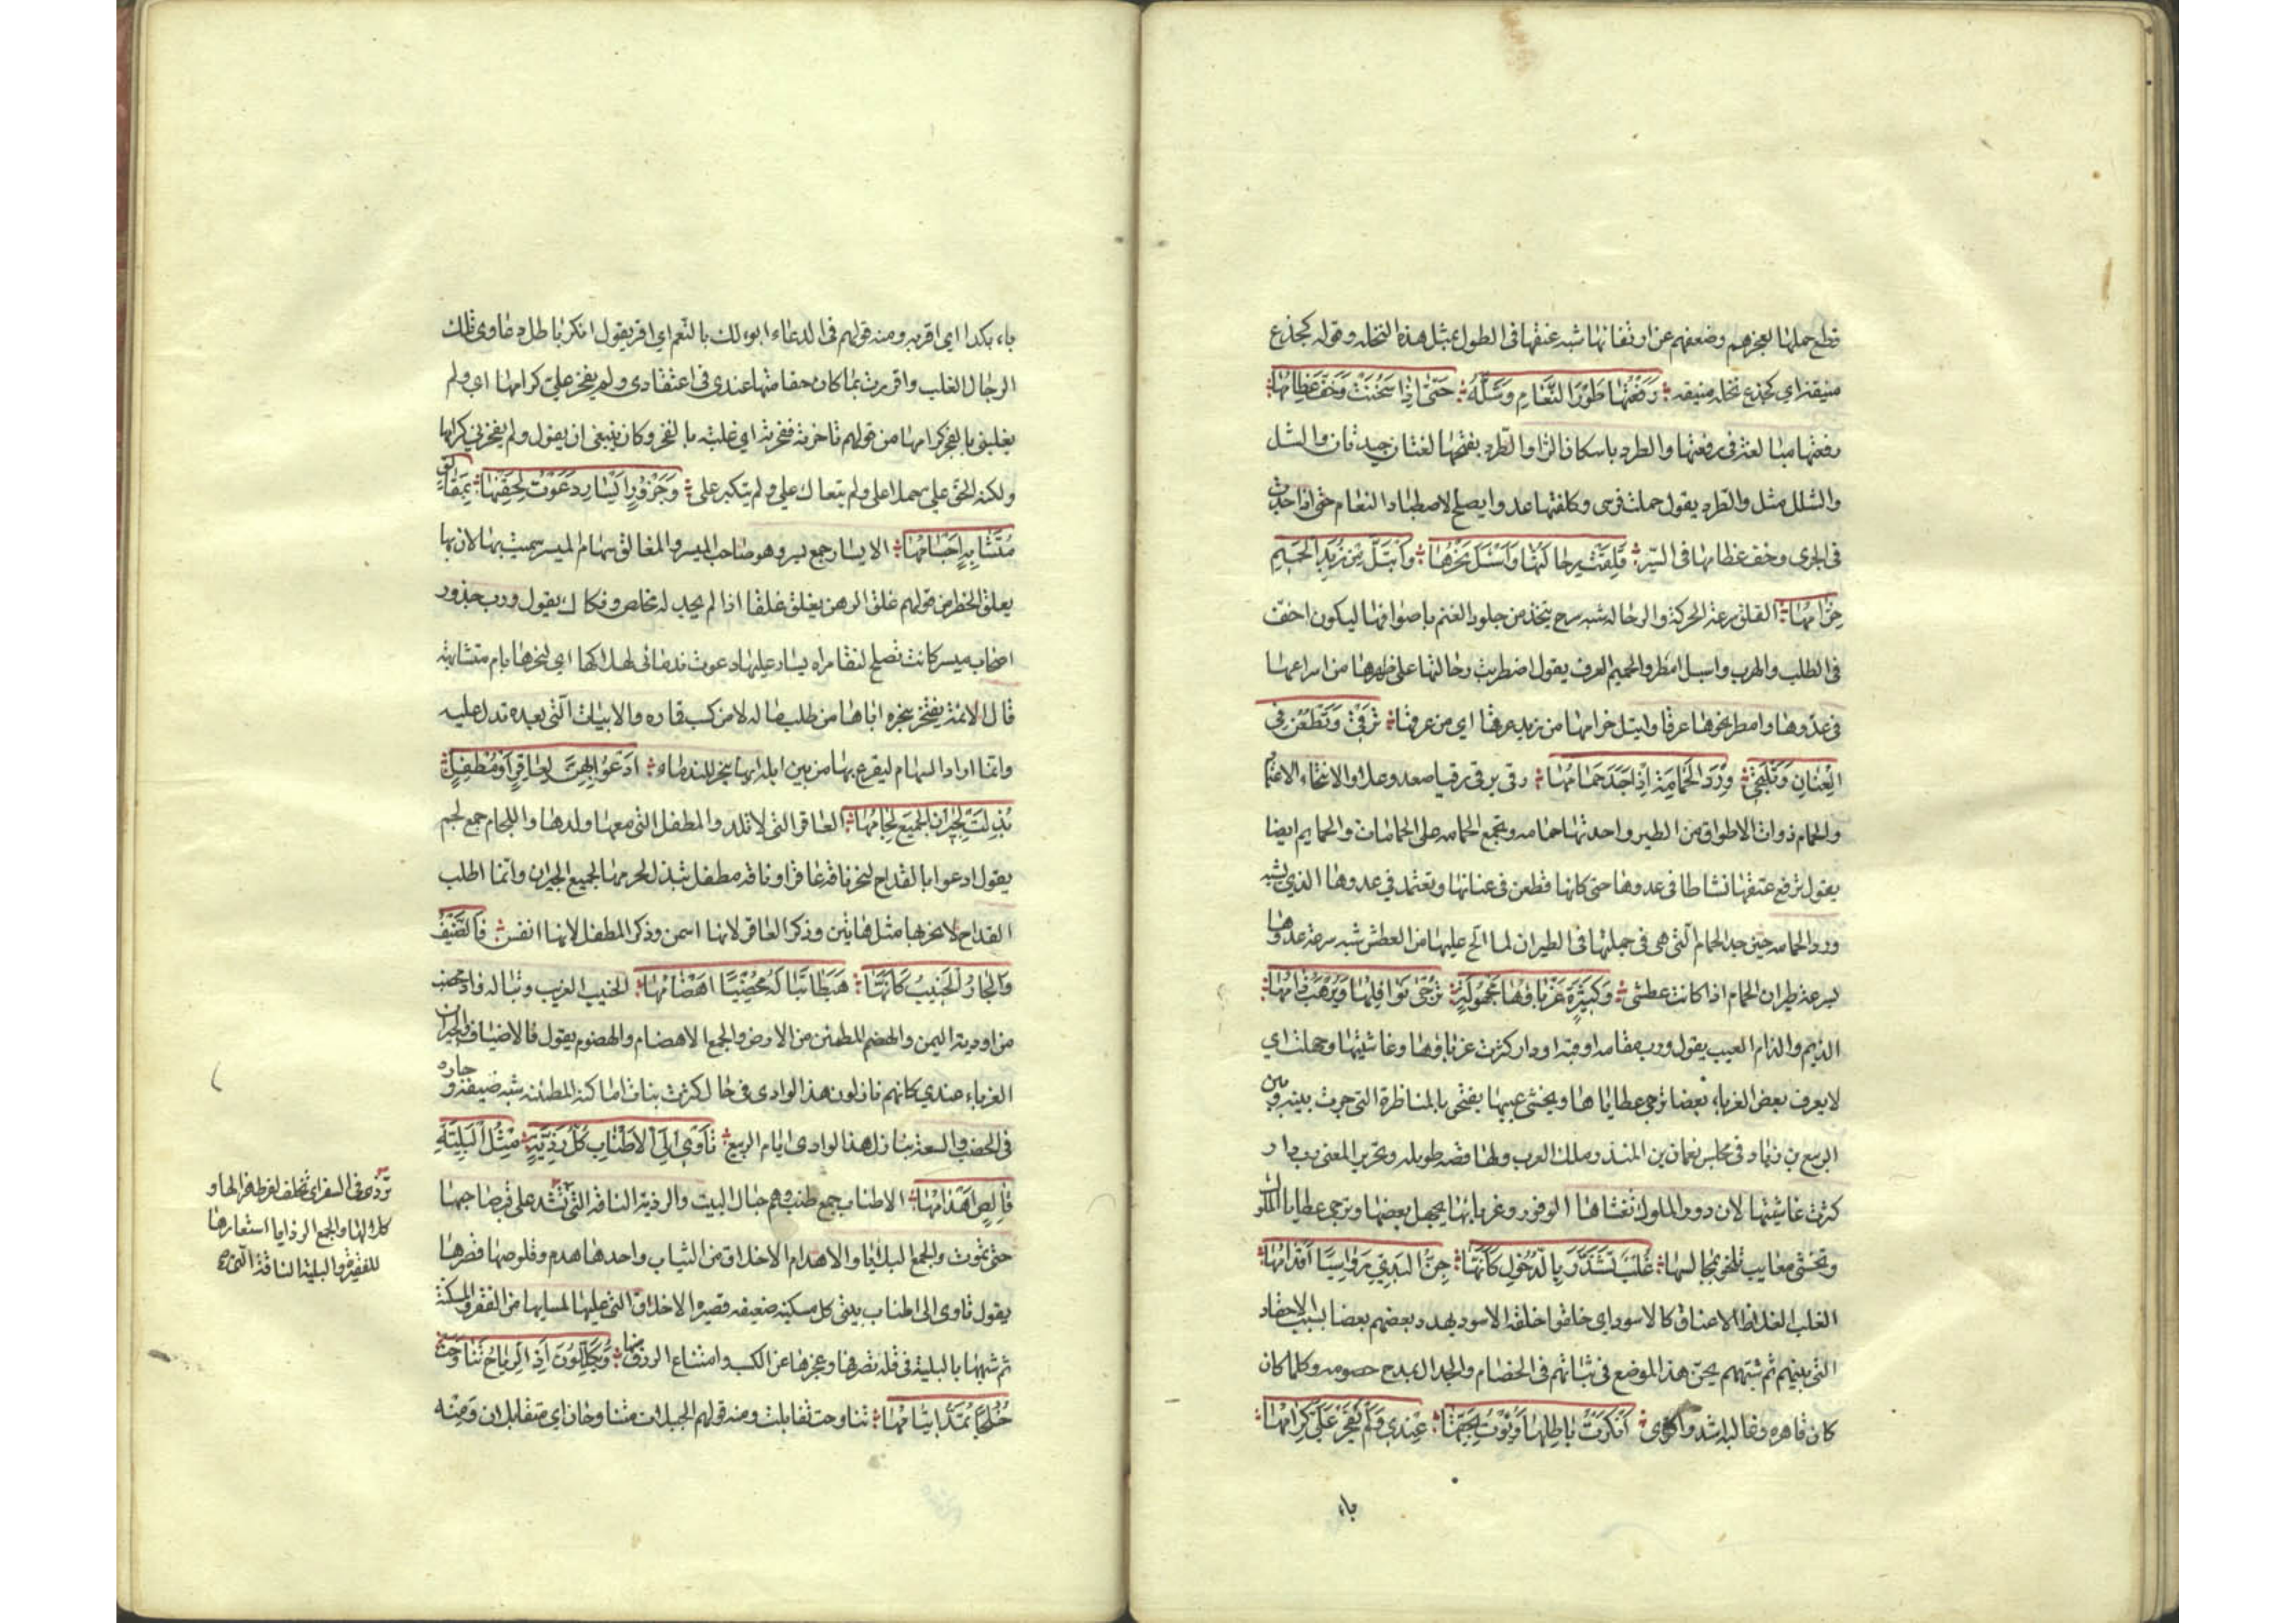 قطع حملها لعجزهم وضعفهم عن ارتفاعها شبه عنقها فى الطول بمثل هذه النخلة وقوله كجذع
منيفة اي كجذع نخلة منيفة رَفَّعْتُهَا طَرَدَ النَّعَامِ وَشَلَّهُ حَتّى اِذَا سَخُنَتْ وَخَفَّ عِظَامُهَا
رفعتها مبالغة فى رفعتها والطرد باسكان الرا والطرد بفتحها لغتان جيدتان والشل
والشلل مثل والطرد يقول حملت فرسى وكلفتها عدوا يصلح لاصطياد النعام حتى اذا جدت
فى الجرى وخف عظامها فى السير قَلِقَتْ رِحَالَتُهَا وَاَسْبَلَ نَحْرُهَا وَابْتَلَّ مِنْ زَبَدِ الْحَمِيمِ
حِزَامُهَا القلق سرعة الحركة والرحالة شبه سرج يتخذ من جلود الغنم باصوافها ليكون اخف
فى الطلب والهرب واسبل امطر والحميم العرق يقول اضطربت رحالتها على ظهرها من اسراعها
فى عدوها وامطر نحرها عرقا وابتل حزامها من زبد عرقها اي من عرقها تَرْقَى وَتَطْعُنُ فِى
الْعِنَانِ وَتَنْتَحِى وِرْدَ الْحَمَامَةِ اِذْ اَجَدَّ حَمَامُهَا رقى يرقى رقيا صعد وعلا والانتحاء الاعتماد
والحمام ذوات الاطواق من الطير واحدتها حمامه وتجمع الحمامه على الحمامات والحمايم ايضا
يقول ترفع عنقها نشاطا فى عدوها حتى كانها تطعن فى عنانها وتعتمد فى عدوها الذي يشبه
ورد الحمامه حين جد الحمام التى هى فى جملتها فى الطيران لما الح عليها من العطش شبه سرعة عدوها
بسرعة طيران الحمام اذا كانت عطشى وَكَثِيرَةٍ غُرَبَاؤُهَا مَجْهُولَةٍ تُرْجَى نَوَافِلُهَا وَيُرْهَبُ ذَامُهَا
الذيم والذام العيب يقول ورب مقامه او قبة او دار كثرت غرباؤها وغاشيتها وجهلت اي
لا يعرف بعض الغرباء بعضا ترجى عطاياها ويخشى عيبها يفتخر بالمناظرة التى جرت بينه وبين
الربيع بن زياد فى مجلس نعمان بن المنذر ملك العرب ولها قصه طويله وتحرير المعنى رب دار
كثرت غاشيتها لان دور الملوك تغشاها الوفود وغرباؤها يجهل بعضها وترجى عطايا الملوك
وتخشى معايب تلحق مجالسها غُلْبٌ تَشَذَّرُ بِالذُّحُولِ كَاَنَّهَا جِنُّ الْبَدِيِّ رَوَاسِيًا اَقْدَامُهَا
الغلب الغلاظ الاعناق كالاسود اي خلقوا خلقة الاسود يهدد بعضهم بعضا بسبب الاحقاد
التى بينهم ثم شبههم بجن هذا الموضع فى ثباتهم فى الخصام والجدال يمدح خصومه وكلما كان
كان قاهره وغالبه اشد واقوى اَنْكَرْتُ بَاطِلَهَا وَبُؤْتُ بِحَقِّهَا عِنْدِي وَلَمْ يَفْخَرْ عَلَيَّ كِرَامُهَا
باء
باء بكذا اي اقر به ومنه قولهم فى الدعاء ابوء لك بالنعم اي اقر يقول انكر باطل دعاوى تلك
الرجال الغلب واقررت بما كان حقا منها عندى فى اعتقادى ولم يفخر علىّ كرامها اي ولم
يغلبنى بالفخر كرامها من قولهم فاخرته ففخرته اي غلبته بالفخر وكان ينبغى ان يقول ولم يفخرنى كرامها
ولكنه الحق على حملا على ولم يتعال على ولم يتكبر على وَجَزُورِ اَيْسَارٍ دَعَوْتُ لِحَتْفِهَا بِمَغَالِقٍ
مُتَشَابِهٍ اَجْسَامُهَا الايسار جمع يسر وهو صاحب الميسر والمغالق سهام الميسر سميت بها لان بها
يغلق الخطر من قولهم غلق الرهن يغلق غلقا اذا لم يجد له تخلص وفكاك يقول ورب جذور
اصحاب ميسر كانت تصلح لتقامراه يسار عليها دعوت ندمائى لهلاكها اي لنحرها بام متشابهة
قال الائمة يفتخر بنحره اياها من طلب ماله لا من كسب قماره والابيات التى بعده تدل عليه
وانما اراد السهام ليقرع بها من بين ابله ايها ينحر للندماء اَدْعُو بِهِنَّ لِعَاقِرٍ اَوْ مُطْفِلٍ
بُذِلَتْ لِجِيرَانِ الْجَمِيعِ لِحَامُهَا العاقر التى لا تلد والمطفل التى معها ولدها واللحام جمع لحم
يقول ادعوا بالقداح لنحر ناقة عاقر او ناقة مطفل تبذل لحومها لجميع الجيران وانما اطلب
القداح لانحر بها مثل هاتين وذكر العاقر لانها اسمن وذكر المطفل لانها انفس فَالضَّيْفُ
وَالْجَارُ الْجَنِيبُ كَاَنَّمَا هَبَطَا تَبَالَةَ مُخْصِبًا اَهْضَامُهَا الجنيب الغريب وتباله واد مخصب
من اودية اليمن والهضم المطمئن من الارض والجمع الاهضام والهضوم يقول فالاضياف والجيران
الغرباء عندي كانهم نازلون هذا الوادى فى حال كثرت نبات اماكنه المطمئنه شبه ضيفه و جاره
فى الخصب والسعة بنازل هذا الوادى ايام الربيع تَأْوِي اِلَى الْاَطْنَابِ كُلُّ رَذِيَّةٍ مِثْلُ الْبَلِيَّةِ
قَالِصٍ اَهْدَامُهَا الاطناب جمع طنب وهم حبال البيت والرذية الناقة التى تشد على قبر صاحبها
حتى تموت والجمع البلايا والاهدام الاخلاق من الثياب واحدها هدم وقلوصها قصرها
يقول تاوى الى اطناب بيتى كل مسكينه ضعيفه قصيرة الاخلاق التى عليها لما بها من الفقر والمسكنة
ثم شبهها بالبلية فى قلة تصرفها وعجزها عن الكسب وامتناع الرزق منها وَيُكَلِّلُونَ اِذَا الرِّيَاحُ تَنَاوَحَتْ
خُلُجًا تُمَدُّ اَيْتَامُهَا تناوحت تقابلت ومنه قولهم الجبلان متناوحان اي متقابلان ومنه
تؤدى فى السفر اي تخلف لفرط هزالها و
كلالتها والجمع الرذايا استعارها
للفقيرة والبلية الناقة التى ح